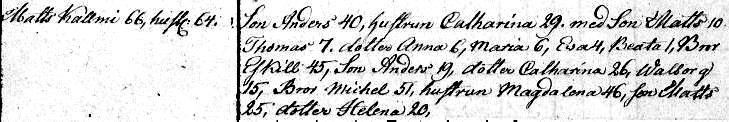 Matts Kallmi 66, hust: 64.
Son Anders 40, hustrun Catharina 29. med Son Matts 10
Thomas 7. dotter Anna 6, Maria 6, Eva 4, Beata 1, Bror
Eskill 45, Son Anders 19, dotter Catharina 26, Walborg
15, Bror Michel 51, hustrun Magdalena 46, son Matts
25, dotter Helena 20,